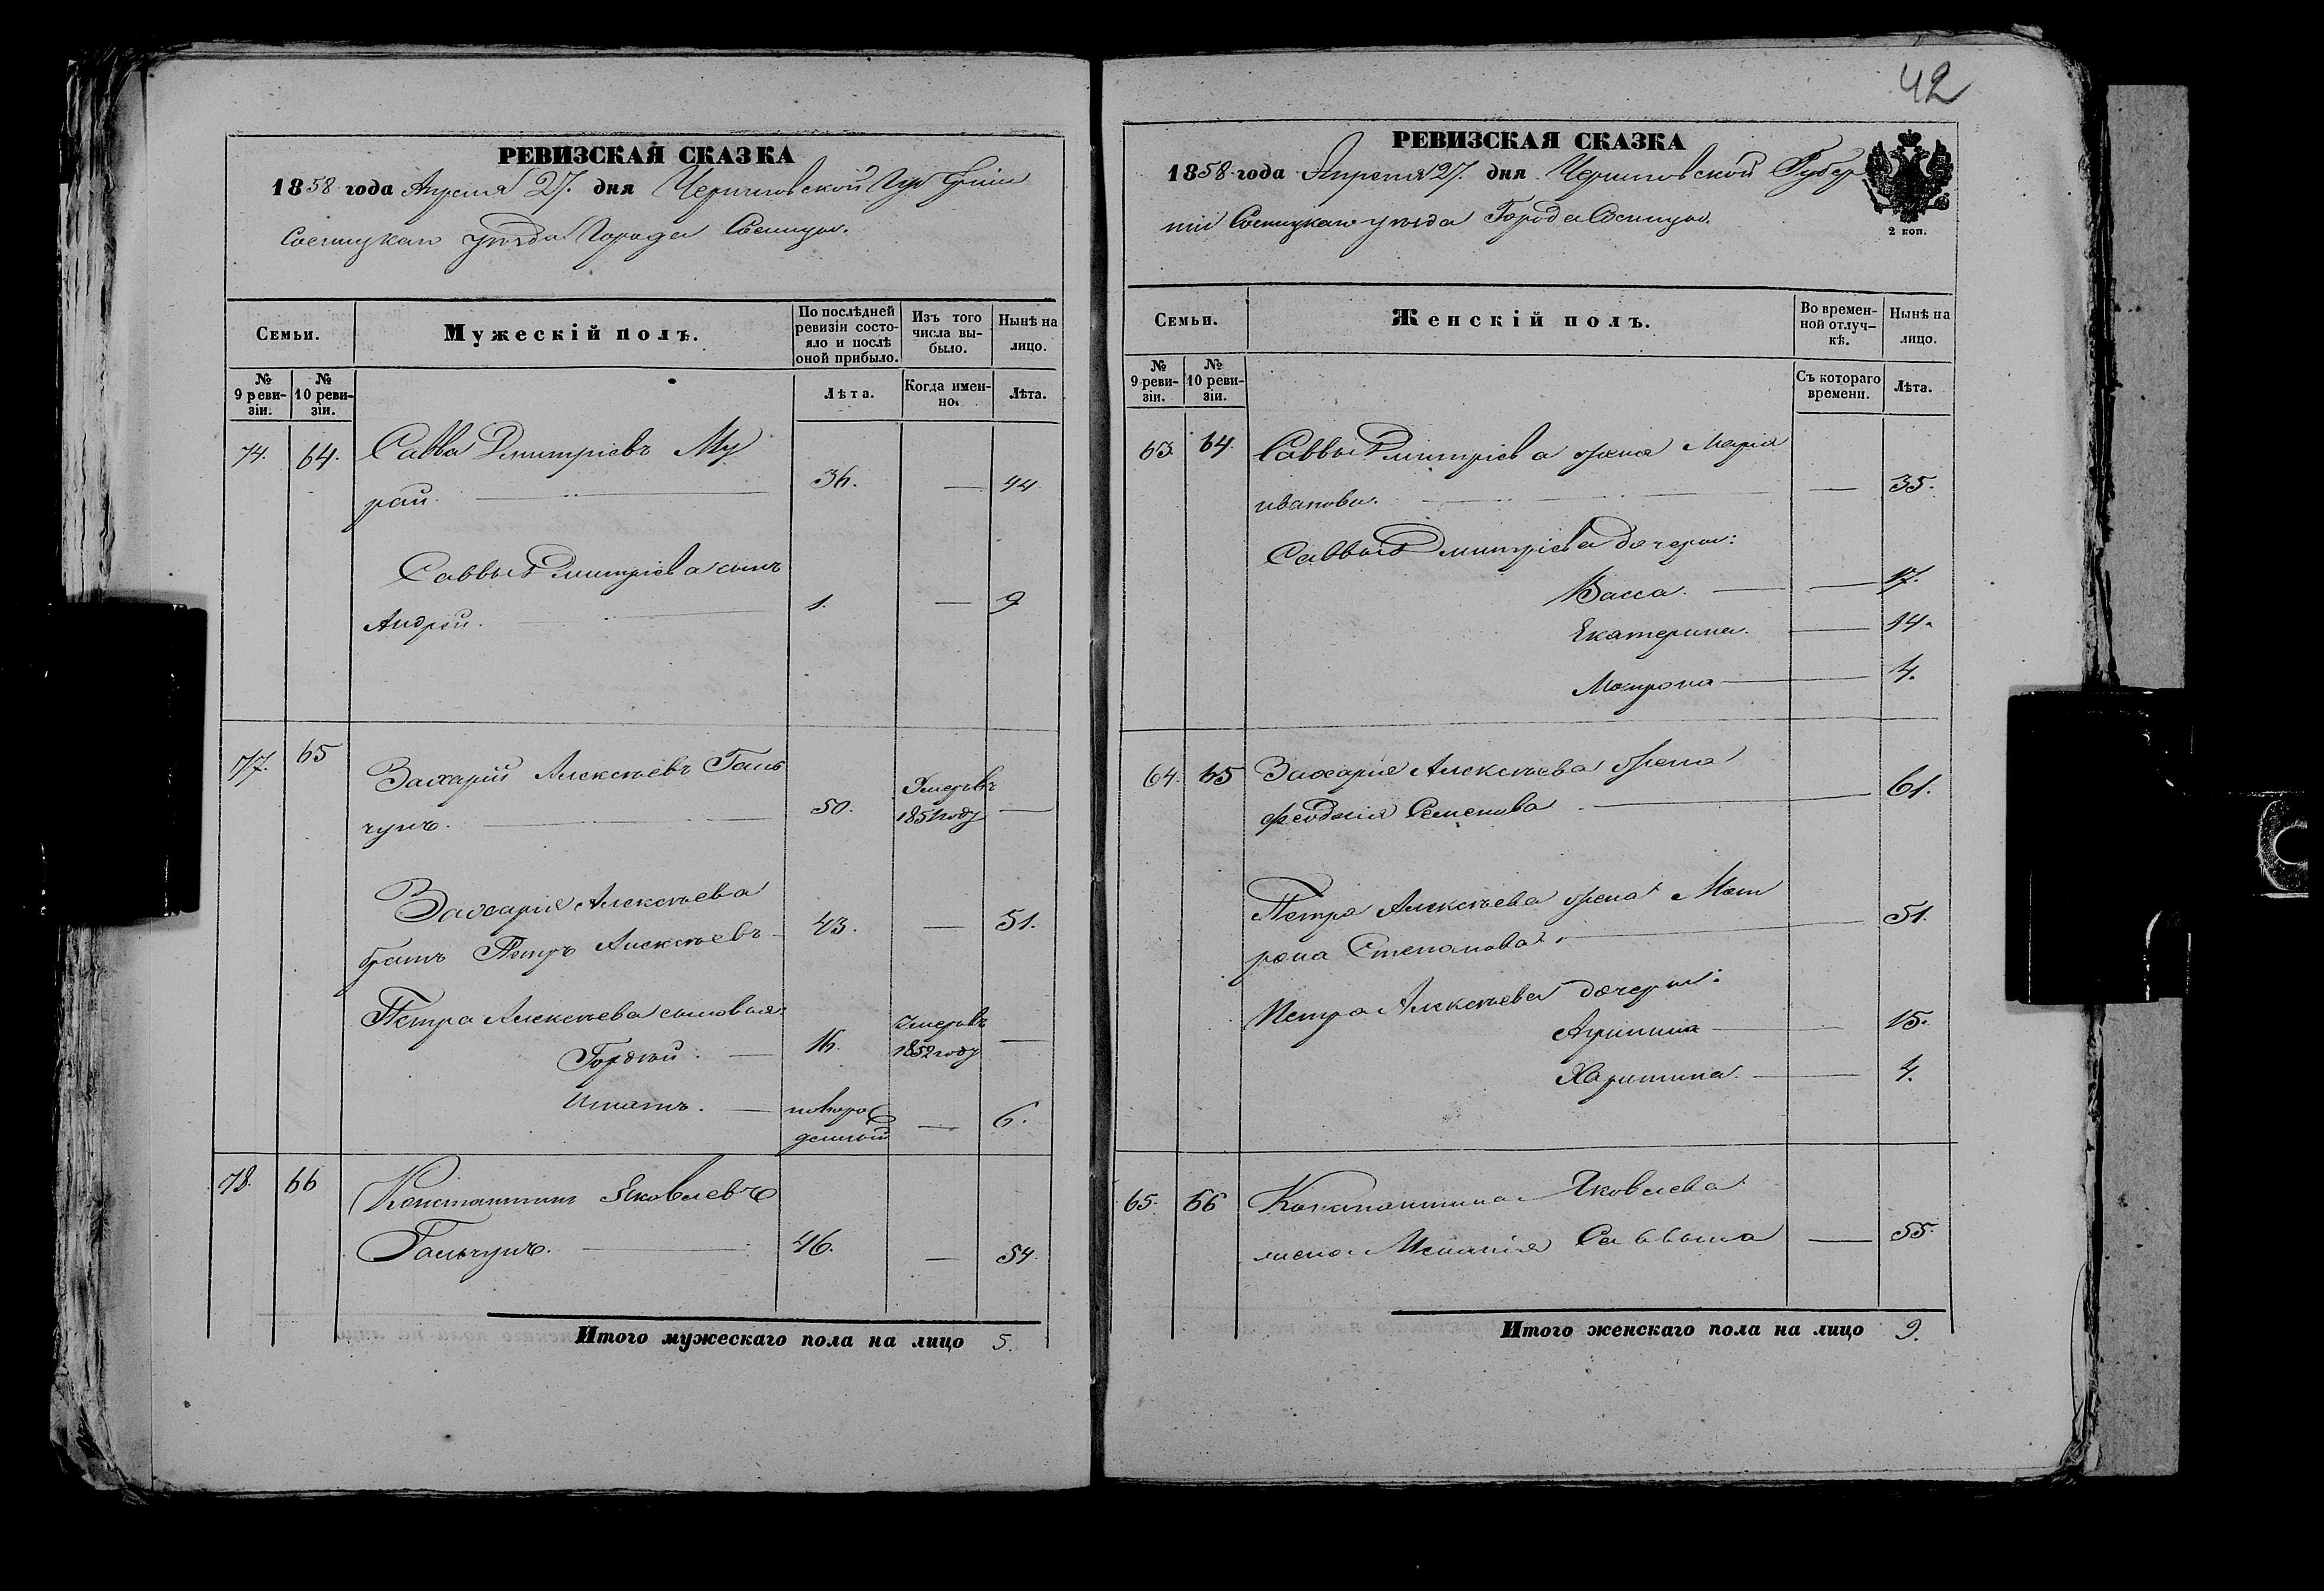 42
РЕВИЗСКАЯ СКАЗКА
1858 года Апреля 27. дня Черниговской Губерніи
Сосницкаго уѣзда Города Сосницы.
Семьи.
Мужескій полъ.
По послѣдней ревизіи состо-яло и послѣ оной прибыло.
Изъ того числа вы-было.
Нынѣ на лицо.
№ 9 реви-зіи.
№ 10 реви-зіи.
Лѣта.
Когда имен-но.
Лѣта.
74. 64. Савва Дмитріевъ Му
рай. 36. — 44
Саввы Дмитріева сынъ
Андрей. 1. — 9
77. 65 Захарій Алексѣевъ Галь
чунъ. 50. Умеръ въ 1851 году —
Захарія Алексѣева
братъ Петръ Алексѣевъ 43. — 51.
Петра Алексѣева сыновья:
Гордѣй. — 16. Умеръ въ 1852 году —
Игнатъ. — новоро
жденный — 6.
78. 66 Константинъ Яковлевъ
Гальчунъ. 46. — 54.
Итого мужескаго пола на лицо 5.
РЕВИЗСКАЯ СКАЗКА
1858 года Апреля 27. дня Черниговской Губер
ніи Сосницкаго уѣзда Города Сосницы.
2 коп.
Семьи.
Женскій полъ.
Во времен-ной отлуч-кѣ.
Нынѣ на лицо.
№ 9 реви-зіи.
№ 10 реви-зіи.
Съ котораго времени.
Лѣта.
63. 64. Саввы Дмитріева жена Марія
иванова. — 35.
Саввы Дмитріева дочери:
Васса. — 17.
Екатерина. — 14.
Матрона — 4.
64. 65 Захарія Алексѣева жена
Феодосія Семенова — 61.
Петра Алексѣева жена Мат
рона Степанова. — 51.
Петра Алексѣева дочери:
Агрипина — 15.
Харитина. — 4.
65. 66 Константина Яковлева
жена Меланія Саввина — 55.
Итого женскаго пола на лицо 9.